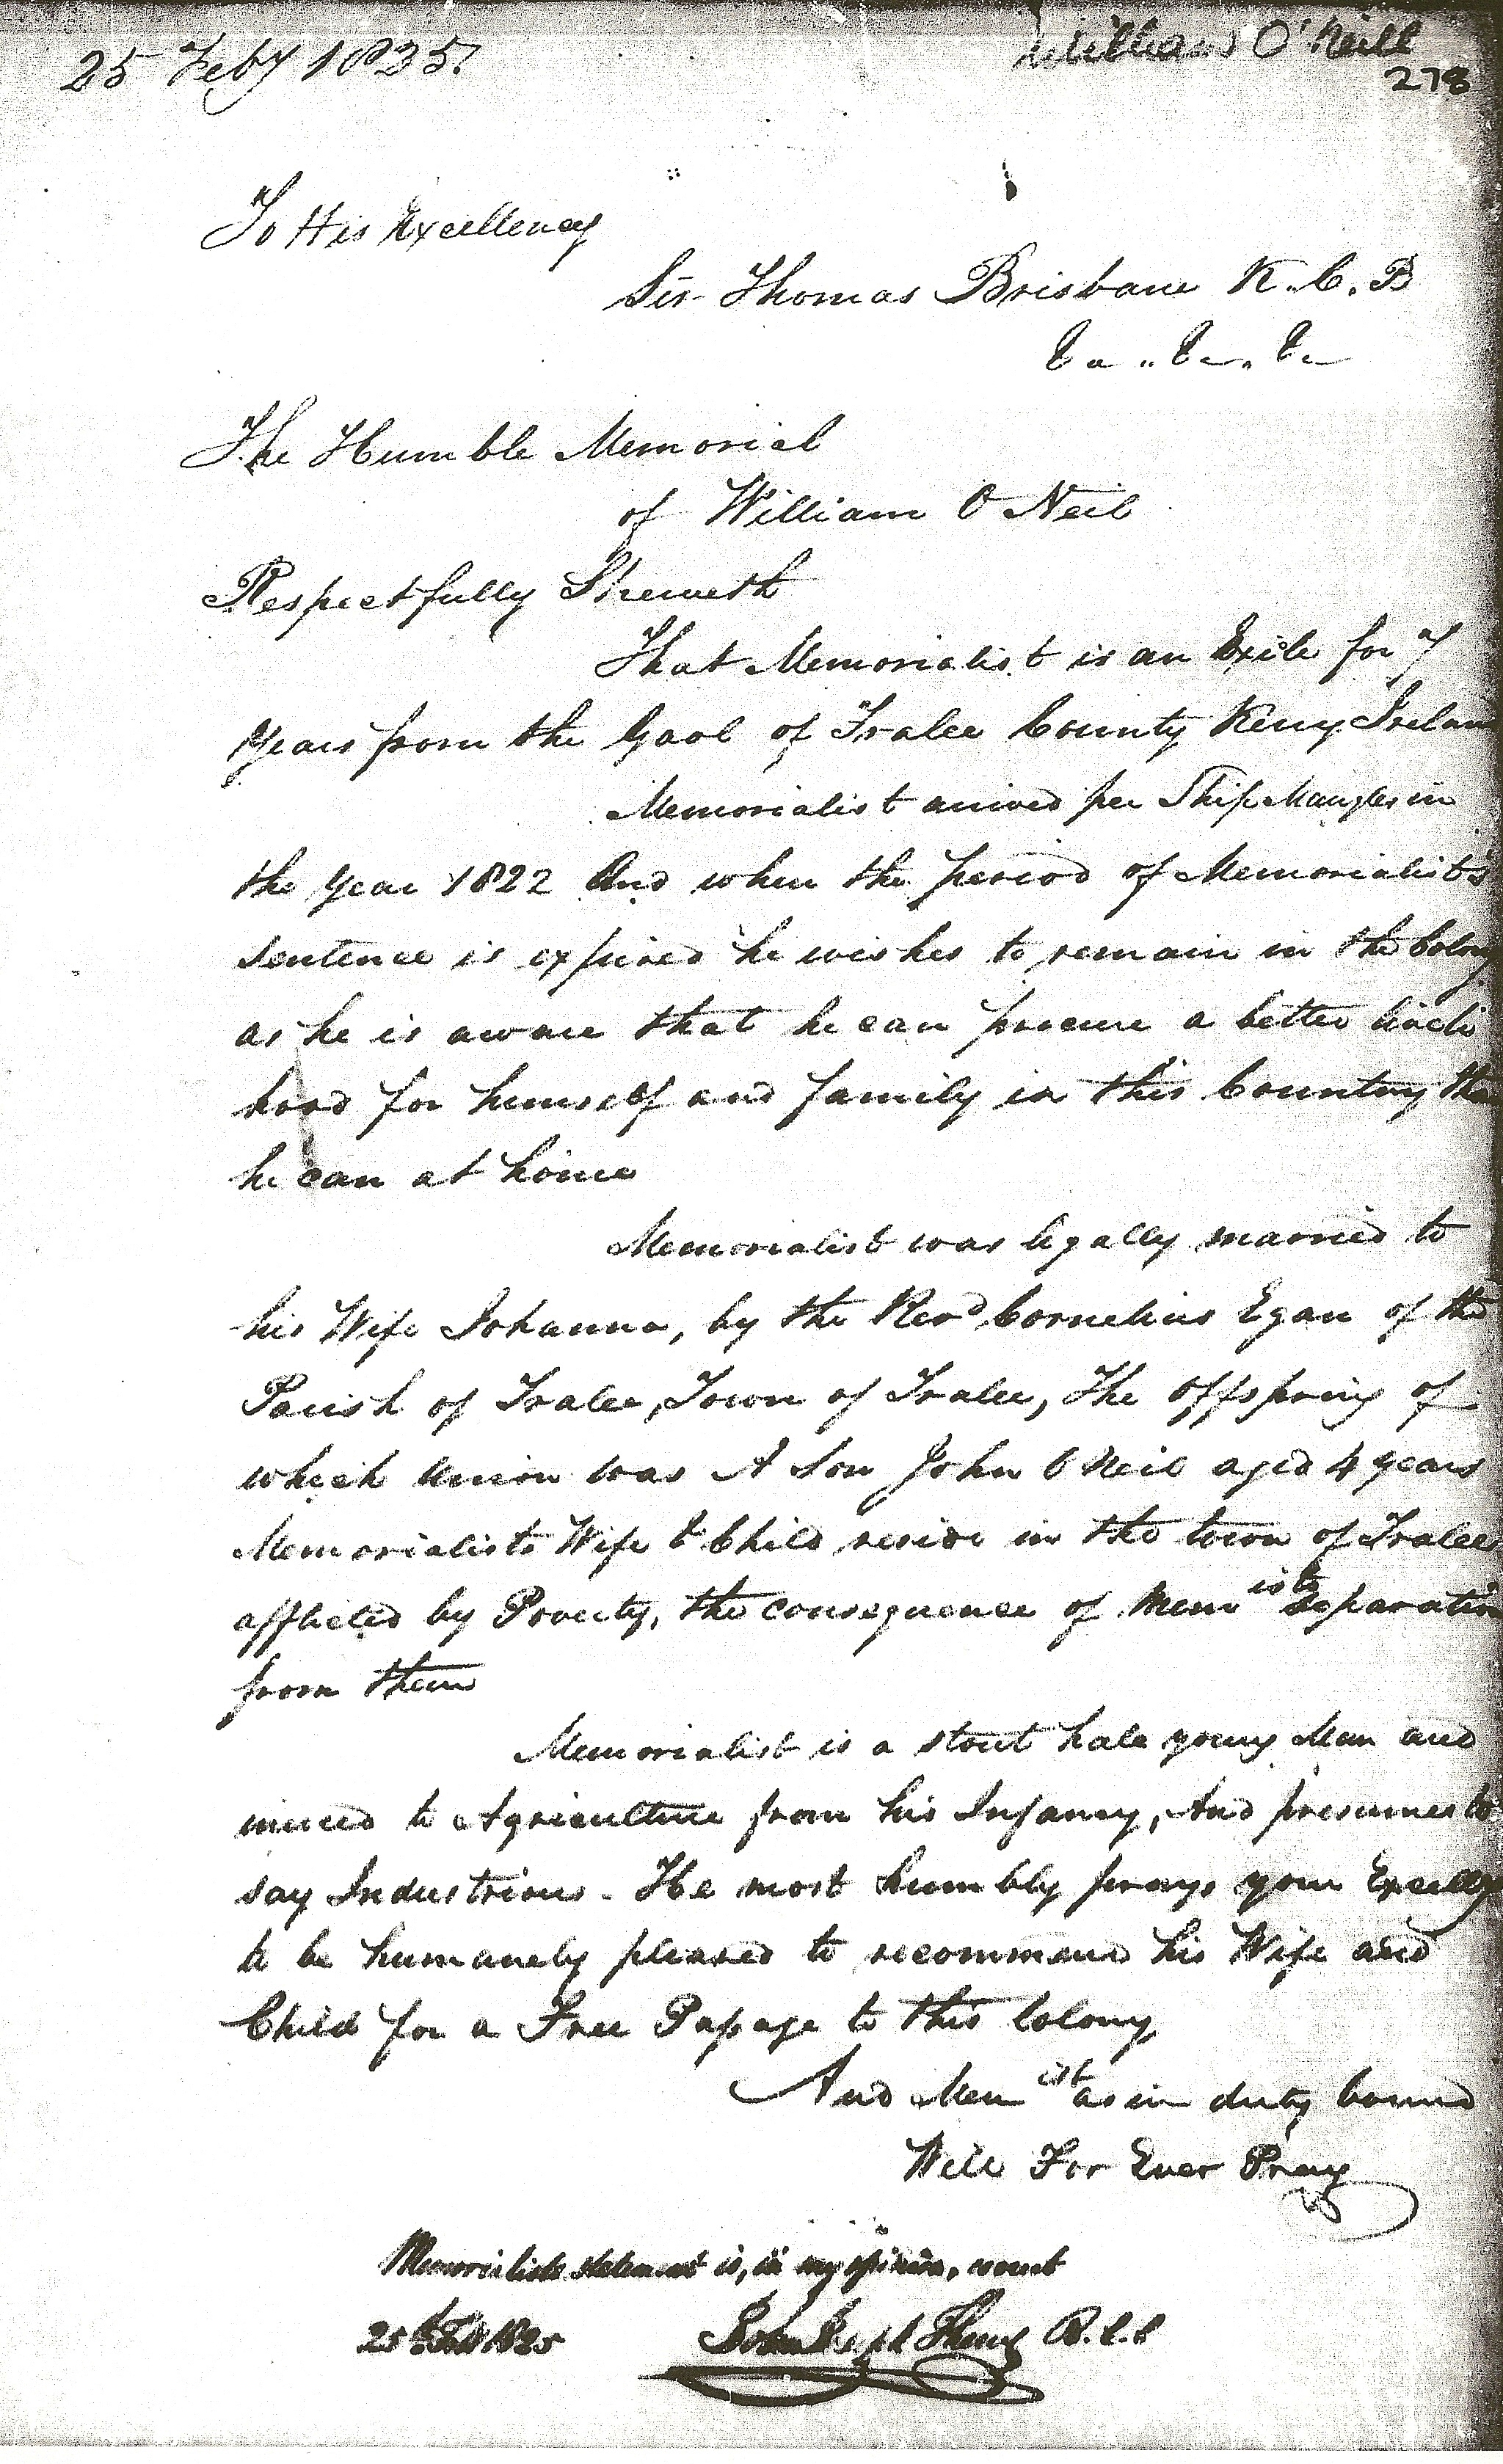 25 Feby 1825.
William O'Neill
278
To His Excellency
Sir Thomas Brisbane K.C.B
&c .. &c .. &c
The Humble Memorial
of William O Neil
Respectfully Sheweth
That Memorialist is an Exile for 7
Years from the Gaol of Tralee County Kerry Ireland
Memorialist arived per Ship Mangles in
the Year 1822 And when the period of Memorialist's
sentence is expired he wishes to remain in the Colony
as he is aware that he can procure a better liveli
hood for himself and family in this Country than
he can at home
Memorialist was legally married to
his Wife Johanna, by the Revd Cornelius Egan of the
Parish of Tralee, Town of Tralee, The offspring of
which Union was A Son John O Neil aged 4 years
Memorialists Wife & Child reside in the town of Tralee
afflicted by Poverty, the consequence of Memists Separation
from them
Memorialist is a stout hale young Man and
inured to Agriculture from his Infancy, And presumes to
say Industrious. He most humbly prays your Excelly
to be humanely pleased to recommend his Wife and
Child for a Free Passage to this Colony
And Memist as in duty bound
Will For Ever Pray
Memorialists statement is, in my opinion, correct
25th Feb 1825 John Joseph Therry R.C.C